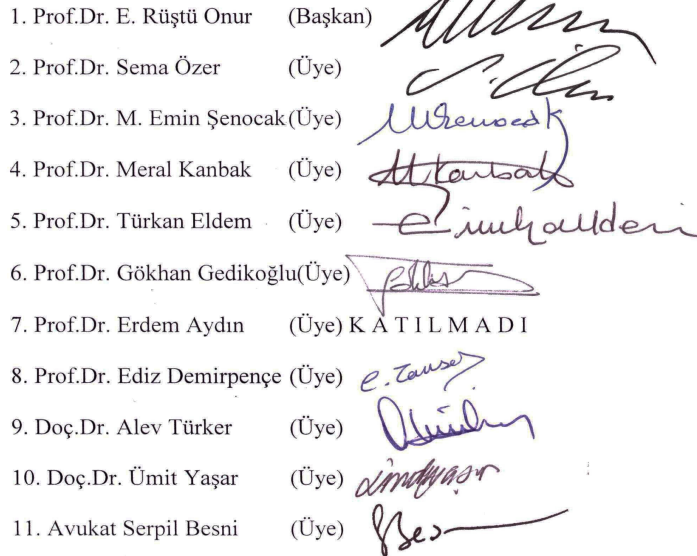 1. Prof.Dr. E. Rüştü Onur (Başkan)
2. Prof.Dr. Sema Özer (Üye)
3. Prof.Dr. M. Emin Şenocak(Üye)
4. Prof.Dr. Meral Kanbak (Üye)
5. Prof.Dr. Türkan Eldem (Üye)
6. Prof.Dr. Gökhan Gedikoğlu(Üye)
7. Prof.Dr. Erdem Aydın (Üye) K A T I L M A D I
8. Prof.Dr. Ediz Demirpençe (Üye)
9. Doç.Dr. Alev Türker (Üye)
10. Doç.Dr. Ümit Yaşar (Üye)
11. Avukat Serpil Besni (Üye)